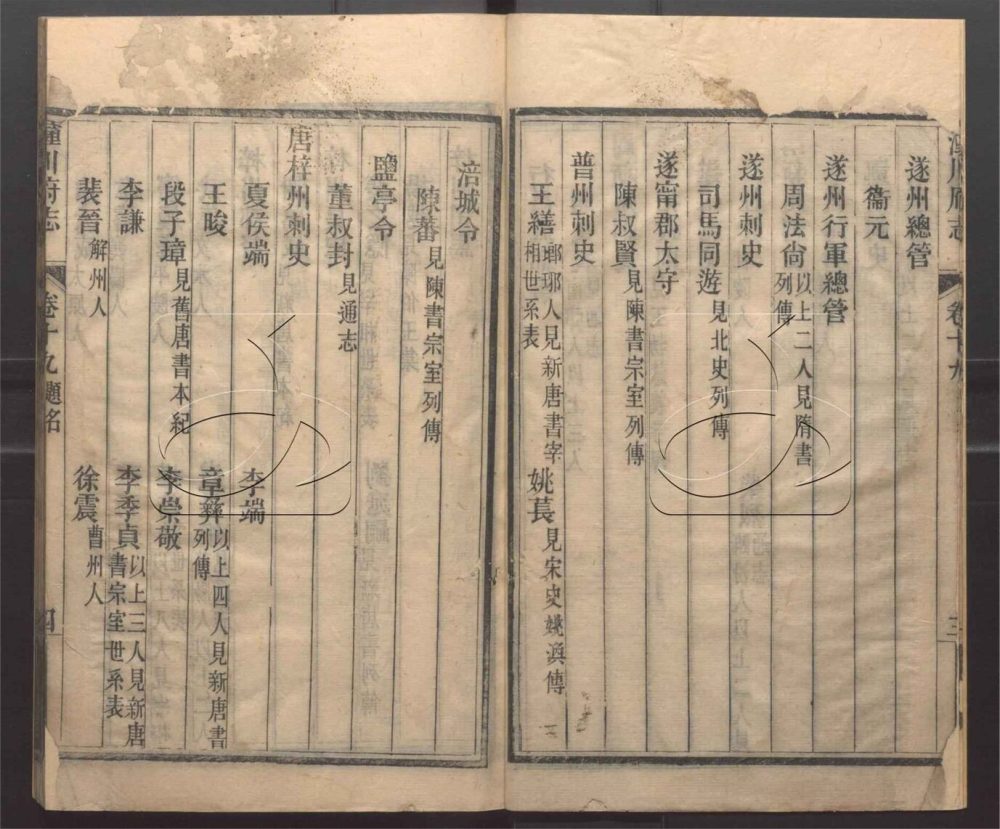 潼川府志
卷十九
三
遂州總管
衞元
遂州行軍總管
周法尙以上二人見隋書列傳
遂州刺史
司馬同遊見北史列傳
遂甯郡太守
陳叔賢見陳書宗室列傳
普州刺史
王繕瑯琊人見新唐書宰相世系表 姚萇見宋史姚渙傳
涪城令
陳蕃見陳書宗室列傳
鹽亭令
董叔封見通志
唐梓州刺史
夏侯端 李端
王晙 章彝以上四人見新唐書列傳
段子璋見舊唐書本紀 李崇敬
李謙 李季貞以上三人見新唐書宗室世系表
裴晉解州人 徐震曹州人
潼川府志
卷十九 題名
四